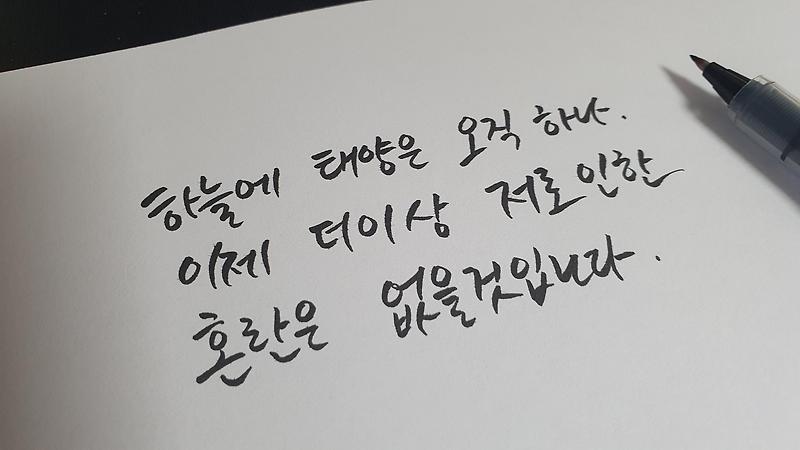 하늘에 태양은 오직 하나.
이제 더이상 저로인한
혼란은 없을것입니다.